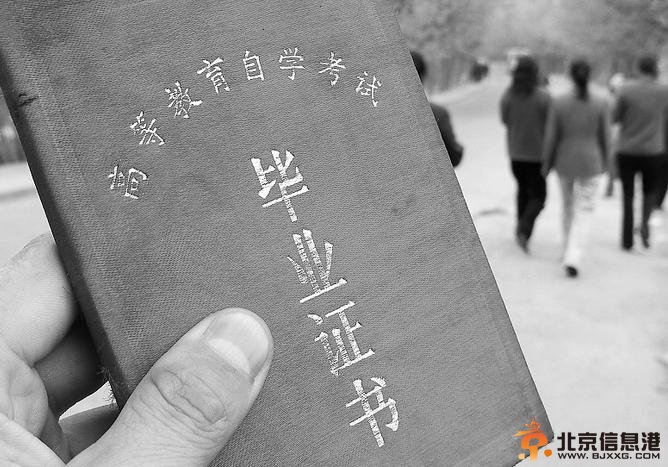 高等教育自学考试
毕业证书
北京信息港
WWW.BJXXG.COM